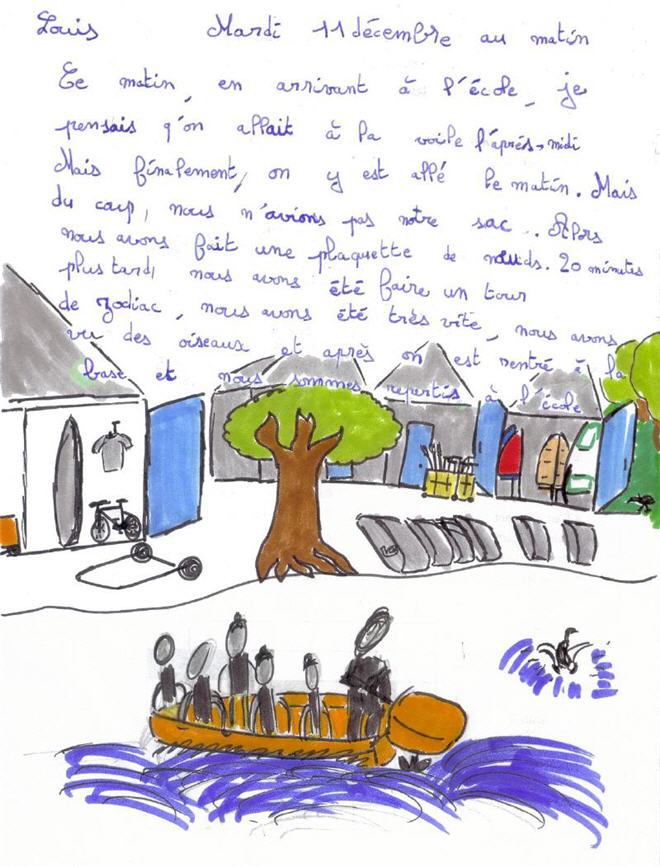 Louis Mardi 11 décembre au matin
Ce matin, en arrivant à l'école, je
pensais q'on allait à la voile l'après-midi
Mais finalement, on y est allé le matin. Mais
du coup, nous n'avions pas notre sac... Alors
nous avons fait une plaquette de nœuds. 20 minutes
plus tard, nous avons été faire un tour
de zodiac, nous avons été très vite, nous avons
vu des oiseaux et après on est rentré à la
base et nous sommes repartis à l'école